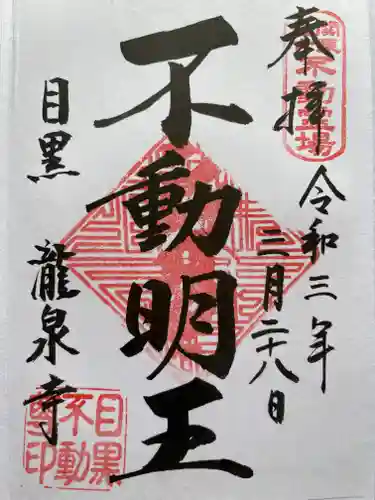 奉拝
關東不動霊場
令和三年
三月二十八日
不動明王
目黒
龍泉寺
目黒
不動
尊印